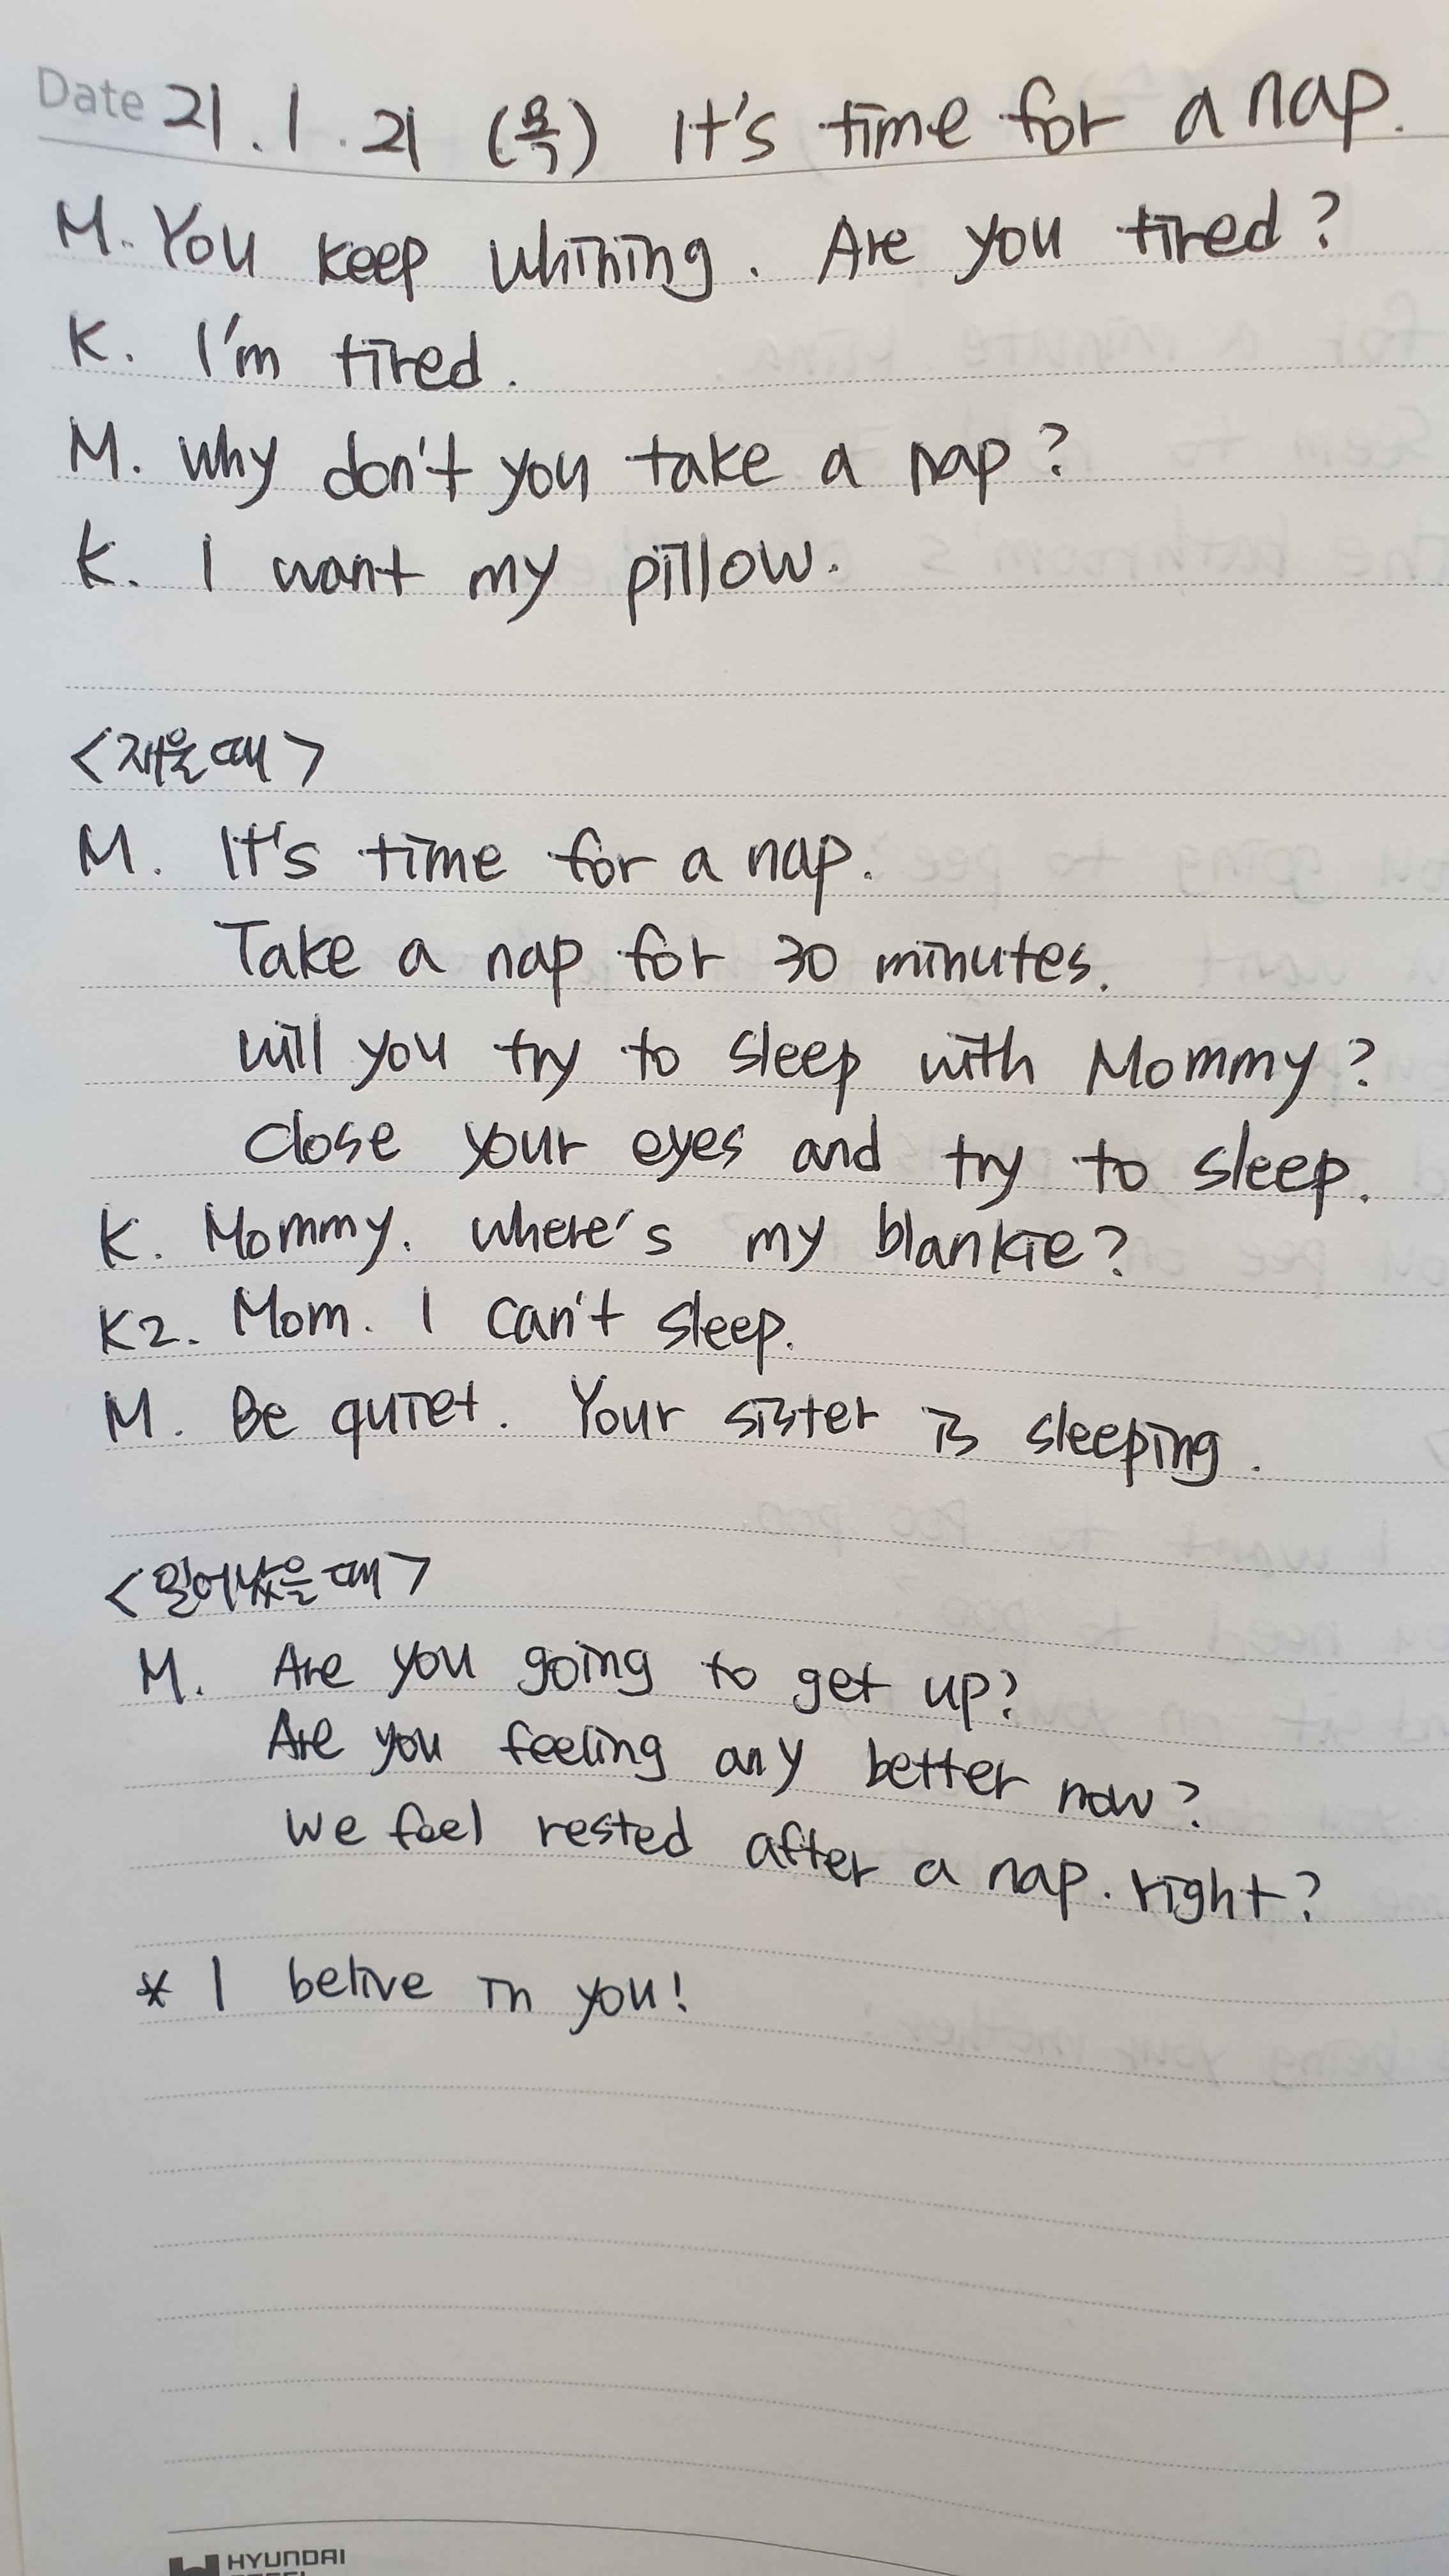 Date 21. 1. 21 (목) It's time for a nap.
M. You keep whining. Are you tired?
K. I'm tired.
M. why don't you take a nap?
K. I want my pillow.
<재울때>
M. It's time for a nap.
Take a nap for 30 minutes.
will you try to sleep with Mommy?
close your eyes and try to sleep.
K. Mommy. where's my blankie?
K2. Mom. I can't sleep.
M. Be quiet. Your sister is sleeping.
<일어났을때>
M. Are you going to get up?
Are you feeling any better now?
we feel rested after a nap. right?
* I belive in you!
HYUNDAI